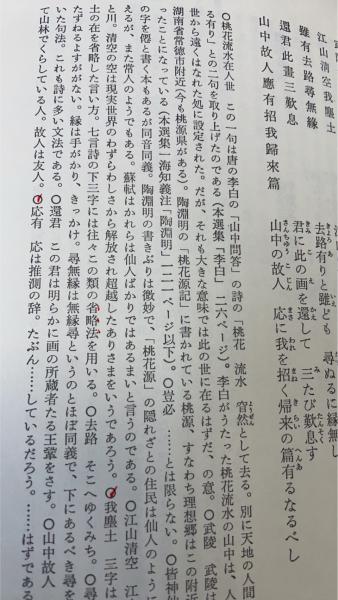 江山清空我塵土
雖有去路尋無縁
還君此畫三歎息
山中故人應有招我歸來篇
去路有りと雖ども 尋ぬるに縁無し
君に此の画を還して 三たび歎息す
山中の故人 応に我を招く帰来の篇有るなるべし
〇桃花流水在人世 この一句は唐の李白の「山中問答」の詩の「桃花 流水 窅然として去る。別に天地の人間
る有り」との二句を取り上げたのである(本選集「李白」 二六ページ)。李白がうたった桃花流水の山中は、人
世から遠くはなれた処に設定された。だが、それも大きな意味では此の世に在るはずだ、の意。〇武陵 武陵は
湖南省常徳市附近(今も桃源県がある)。陶淵明の「桃花源記」に書かれている桃源、すなわち理想郷はこの附近
ったことになっている(本選集一海知義注「陶淵明」一二一ページ以下)。〇豈必 ……とは限らない。〇皆神仙
の字を僊と書く本もあるが同音同義。陶淵明の書きぶりは微妙で、「桃花源」の隠れざとの住民は仙人のように
えるが、また常人のようでもある。蘇軾はかれらは仙人ばかりではあるまいと言うのである。〇江山清空 江
と川。清空の空は現実世界のわずらわしさから解放され超越したありさまをいうであろう。〇我塵土 三字は
土の在を省略した言い方。七言詩の下三字には往々この類の省略法を用いる。〇去路 そこへゆくみち。〇尋
たずねるよすががない。縁は手がかり、きっかけ。尋無縁は無縁尋というのとほぼ同義で、下にあるべき尋を
いた句法。これも詩に多い文法である。〇還君 この君は明らかに画の所蔵者たる王鞏をさす。〇山中故人
て山林でくらしている人。故人は友人。〇応有 応は推測の辞。たぶん……しているだろう。……はずである